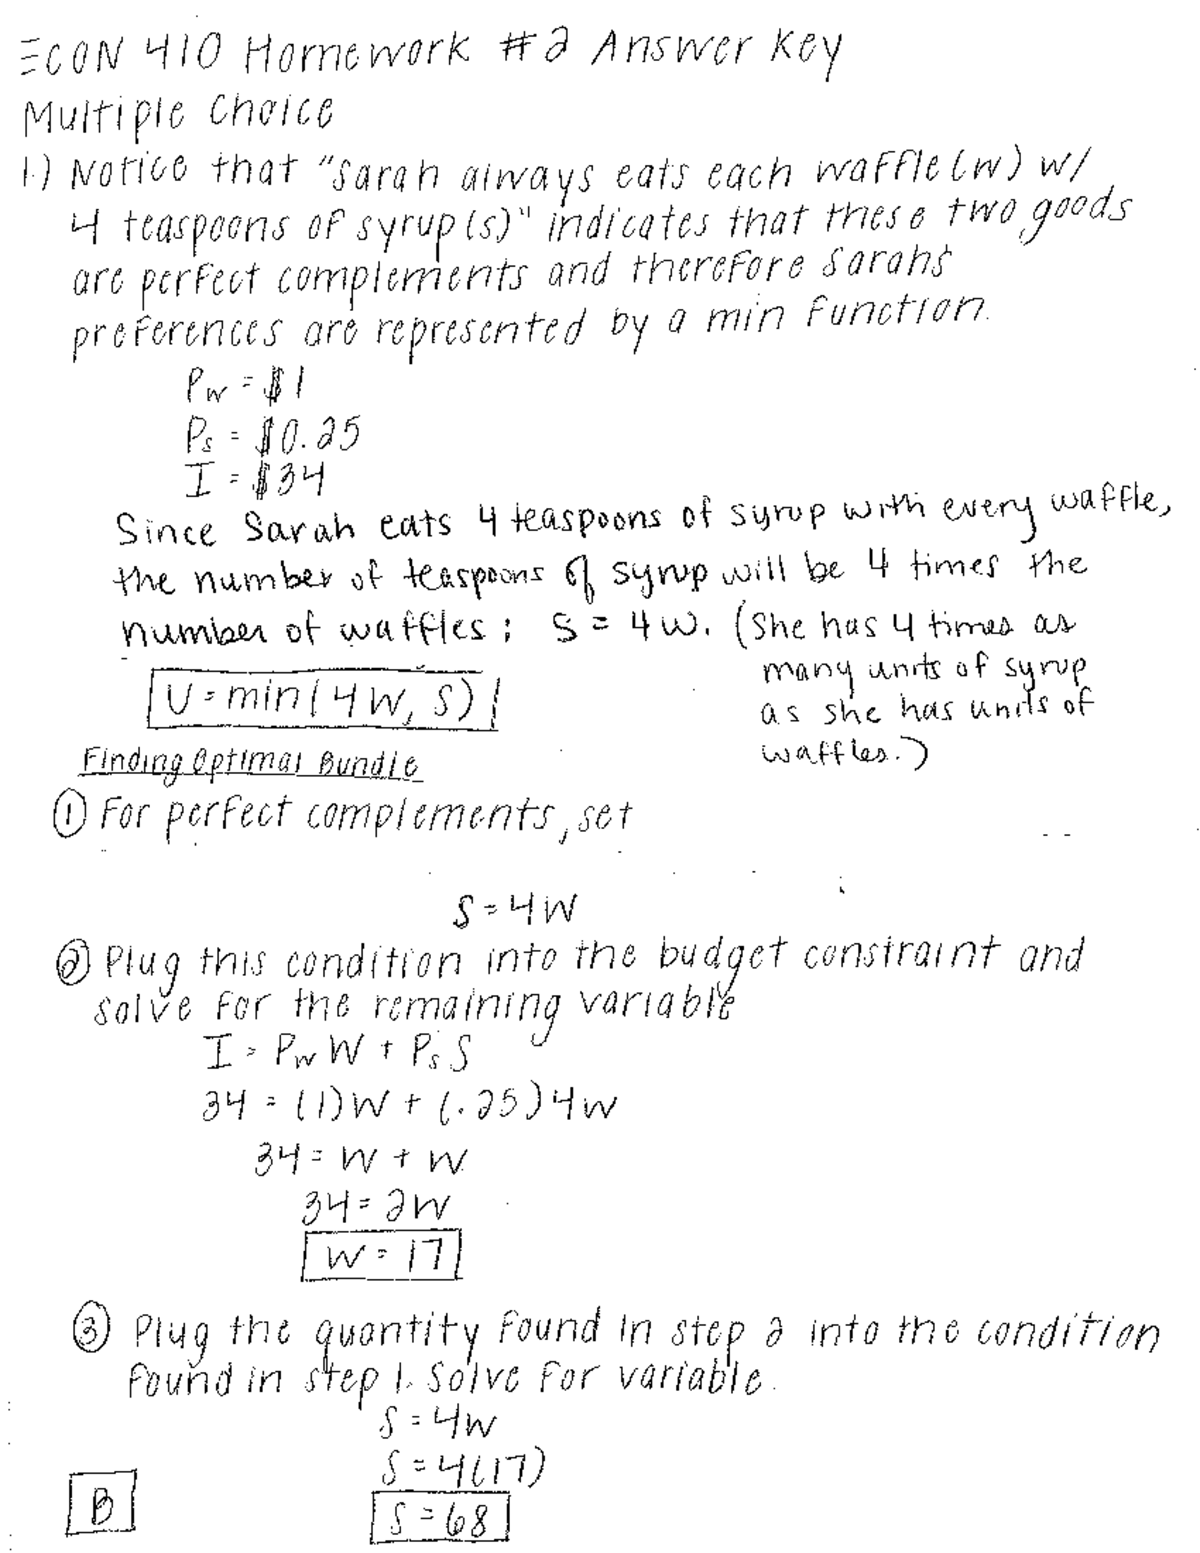 ECON 410 Homework #2 Answer Key
Multiple Choice
1.) Notice that "Sarah always eats each waffle (w) w/
4 teaspoons of syrup (s)" indicates that these two goods
are perfect complements and therefore Sarah's
preferences are represented by a min function.
Pw = $1
Ps = $0.25
I = $34
Since Sarah eats 4 teaspoons of syrup with every waffle,
the number of teaspoons of syrup will be 4 times the
number of waffles: S = 4W. (She has 4 times as
many units of syrup
as she has units of
waffles.)
U = min(4W, S)
Finding Optimal Bundle
① For perfect complements, set
S = 4W
② Plug this condition into the budget constraint and
solve for the remaining variable
I = PwW + PsS
34 = (1)W + (.25)4W
34 = W + W
34 = 2W
W = 17
③ Plug the quantity found in step 2 into the condition
found in step 1. Solve for variable.
S = 4W
S = 4(17)
S = 68
B